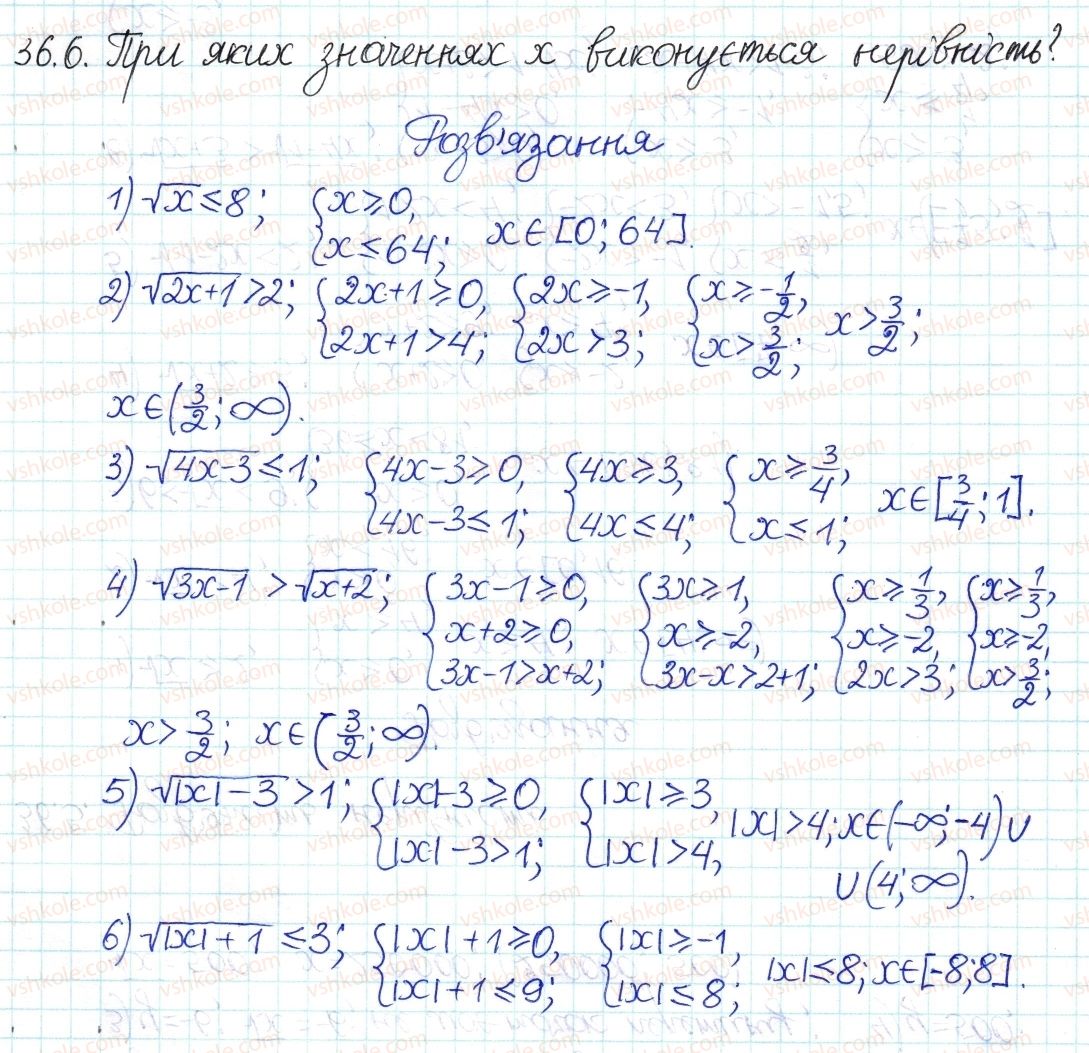 36.6. При яких значеннях x виконується нерівність?
Розв'язання
1) √x ≤ 8; {x ≥ 0, x ≤ 64; x ∈ [0; 64].
2) √(2x+1) > 2; {2x+1 ≥ 0, 2x+1 > 4; {2x ≥ -1, 2x > 3; {x ≥ -1/2, x > 3/2; x > 3/2;
x ∈ (3/2; ∞).
3) √(4x-3) ≤ 1; {4x-3 ≥ 0, 4x-3 ≤ 1; {4x ≥ 3, 4x ≤ 4; {x ≥ 3/4, x ≤ 1; x ∈ [3/4; 1].
4) √(3x-1) > √(x+2); {3x-1 ≥ 0, x+2 ≥ 0, 3x-1 > x+2; {3x ≥ 1, x ≥ -2, 3x-x > 2+1; {x ≥ 1/3, x ≥ -2, 2x > 3; {x ≥ 1/3, x ≥ -2, x > 3/2;
x > 3/2; x ∈ (3/2; ∞).
5) √(|x|-3) > 1; {|x|-3 ≥ 0, |x|-3 > 1; {|x| ≥ 3, |x| > 4, |x| > 4; x ∈ (-∞; -4) ∪
∪ (4; ∞).
6) √(|x|+1) ≤ 3; {|x|+1 ≥ 0, |x|+1 ≤ 9; {|x| ≥ -1, |x| ≤ 8; |x| ≤ 8; x ∈ [-8; 8].
vshkole.com